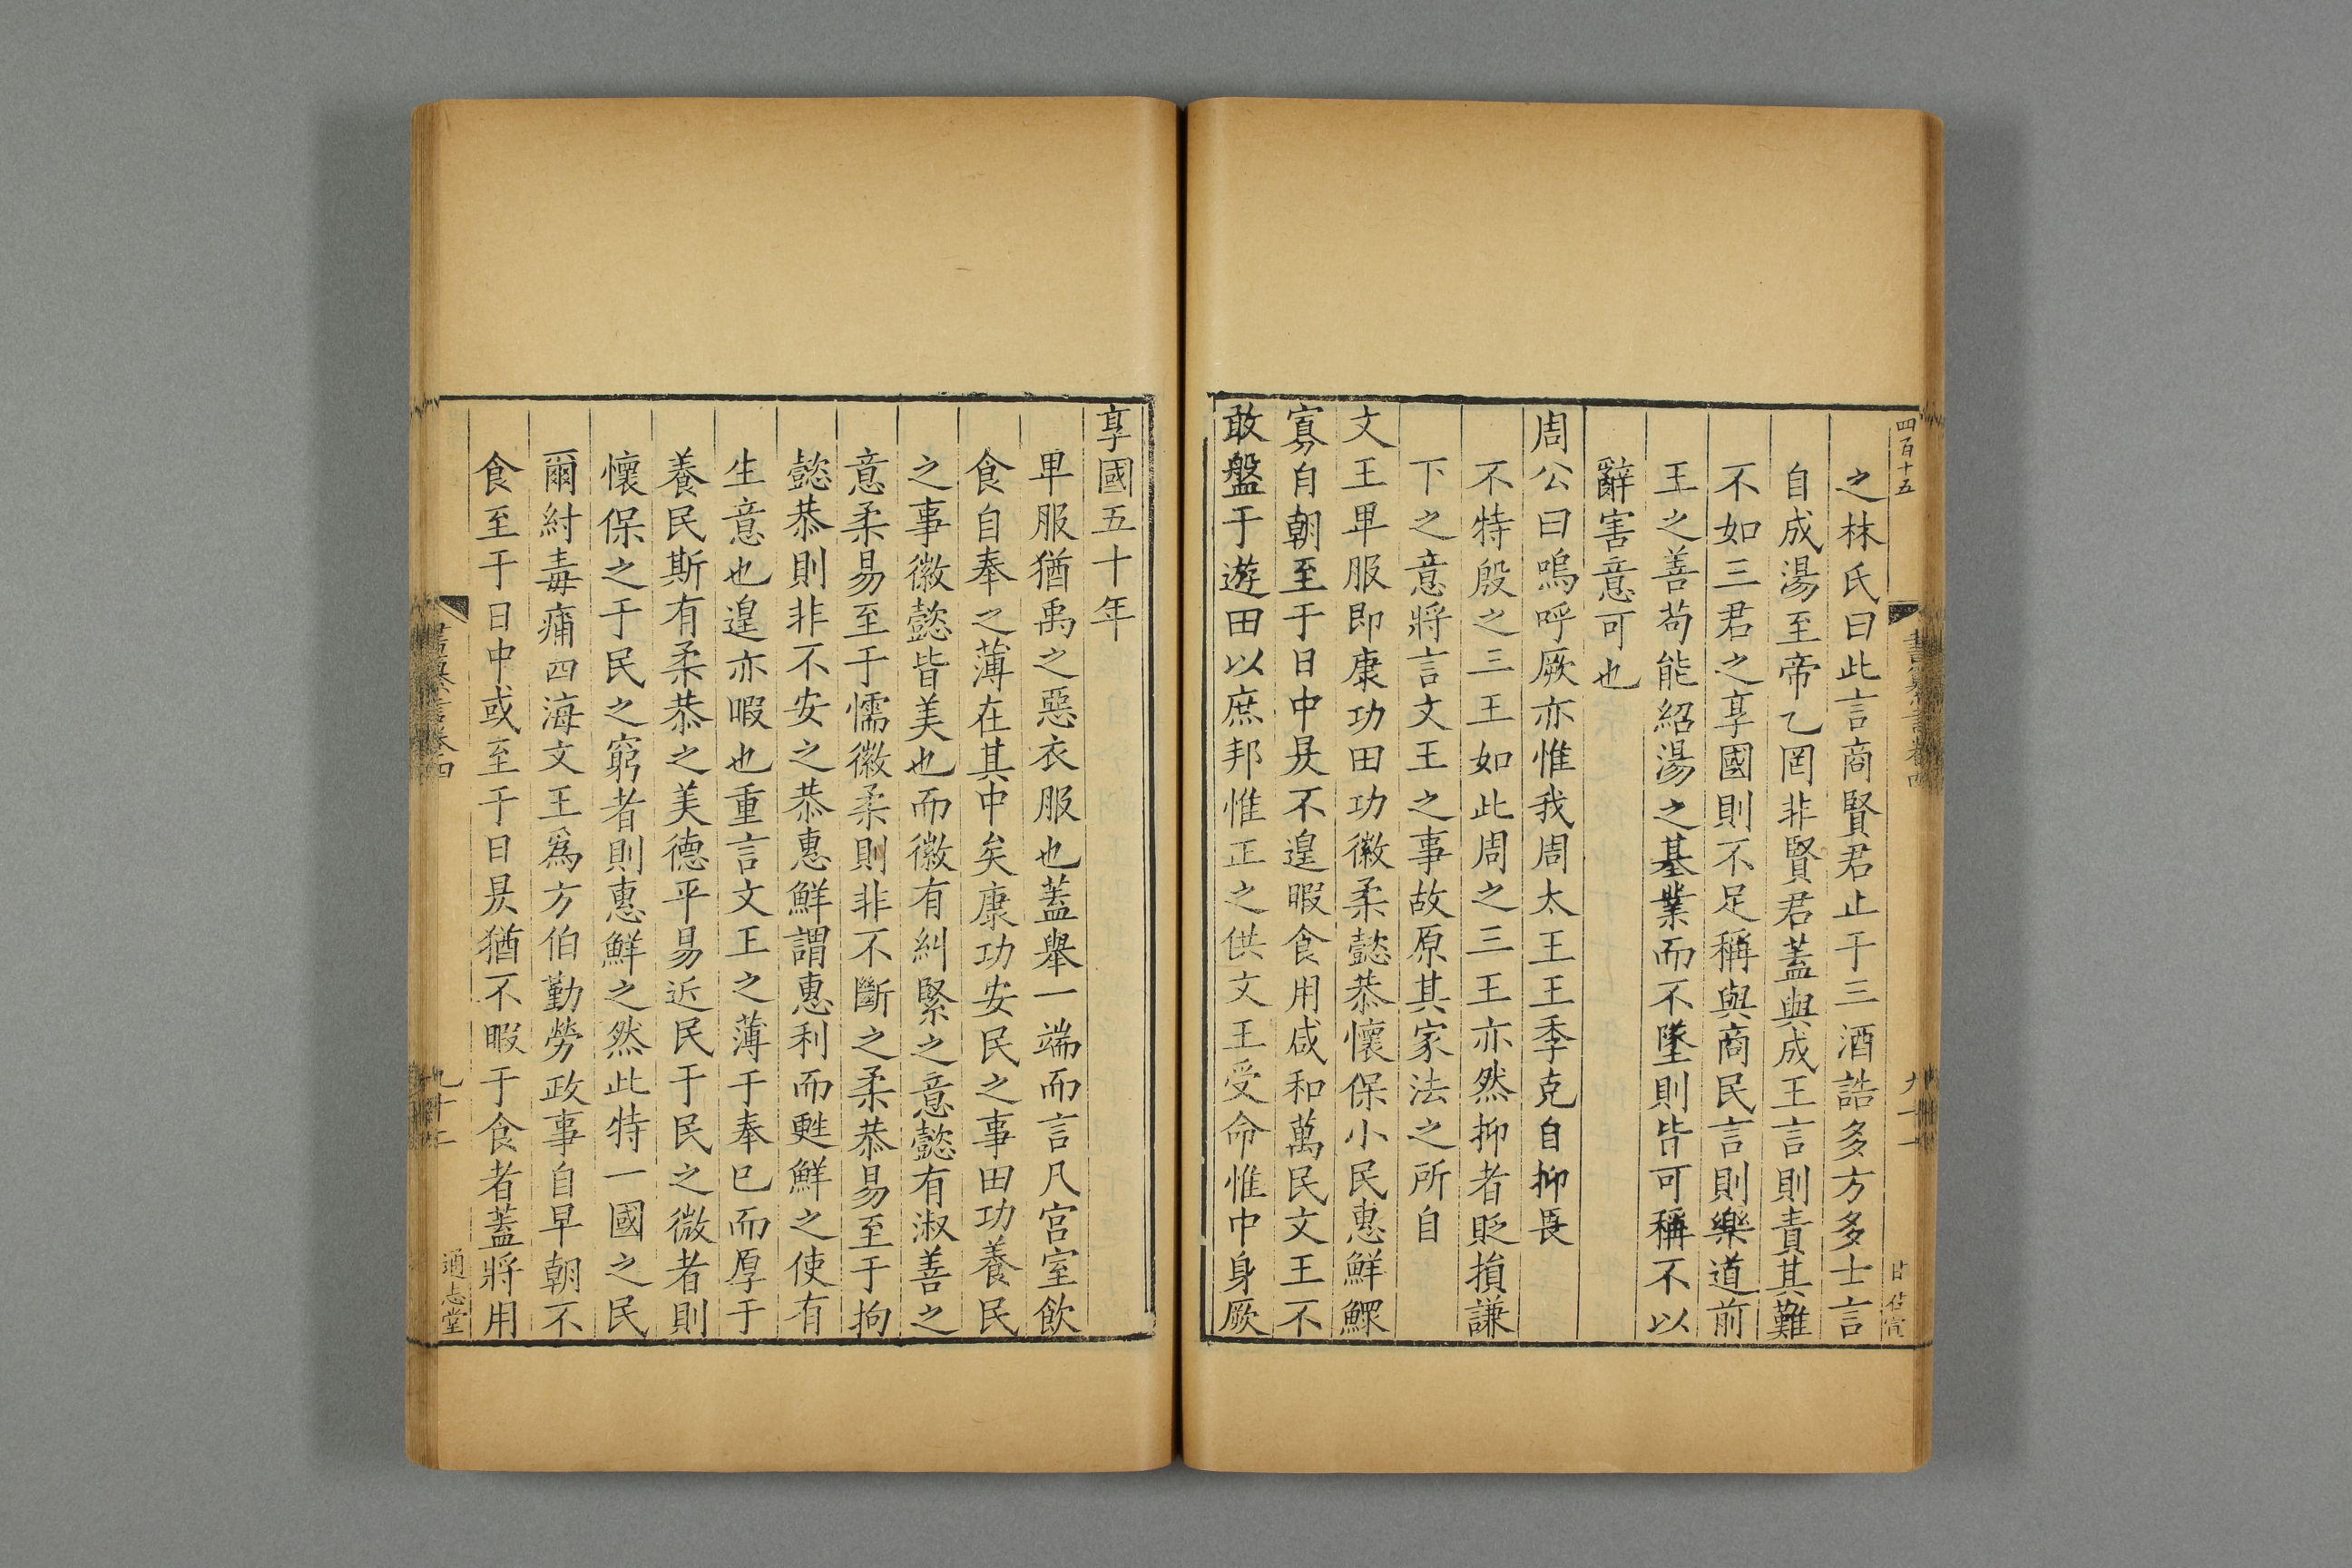 四百十五
之林氏曰此言商賢君止于三酒誥多方多士言
自成湯至帝乙罔非賢君蓋與成王言則責其難
不如三君之享國則不足稱與商民言則樂道前
王之善苟能紹湯之基業而不墜則皆可稱不以
辭害意可也
周公曰嗚呼厥亦惟我周太王王季克自抑畏
不特殷之三王如此周之三王亦然抑者貶損謙
下之意將言文王之事故原其家法之所自
文王𤰞服即康功田功徽柔懿恭懷保小民惠鮮鰥
寡自朝至于日中昃不遑暇食用咸和萬民文王不
敢盤于遊田以庶邦惟正之供文王受命惟中身厥
享國五十年
𤰞服猶禹之惡衣服也蓋舉一端而言凡宮室飲
食自奉之薄在其中矣康功安民之事田功養民
之事徽懿皆美也而徽有糾緊之意懿有淑善之
意柔易至于懦徽柔則非不斷之柔恭易至于拘
懿恭則非不安之恭惠鮮謂惠利而甦鮮之使有
生意也遑亦暇也重言文王之薄于奉已而厚于
養民斯有柔恭之美德平易近民于民之微者則
懷保之于民之窮者則惠鮮之然此特一國之民
爾紂毒痡四海文王爲方伯勤勞政事自早朝不
食至于日中或至于日昃猶不暇于食者蓋將用
九十二
通志堂